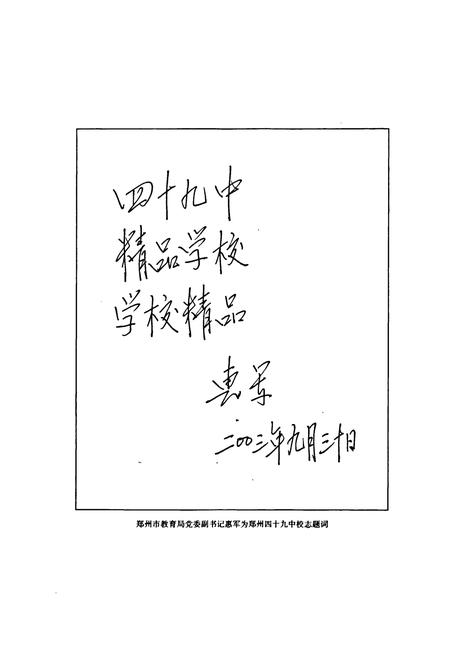 四十九中
精品学校
学校精品
惠军
二00三年九月三十日
郑州市教育局党委副书记惠军为郑州四十九中校志题词